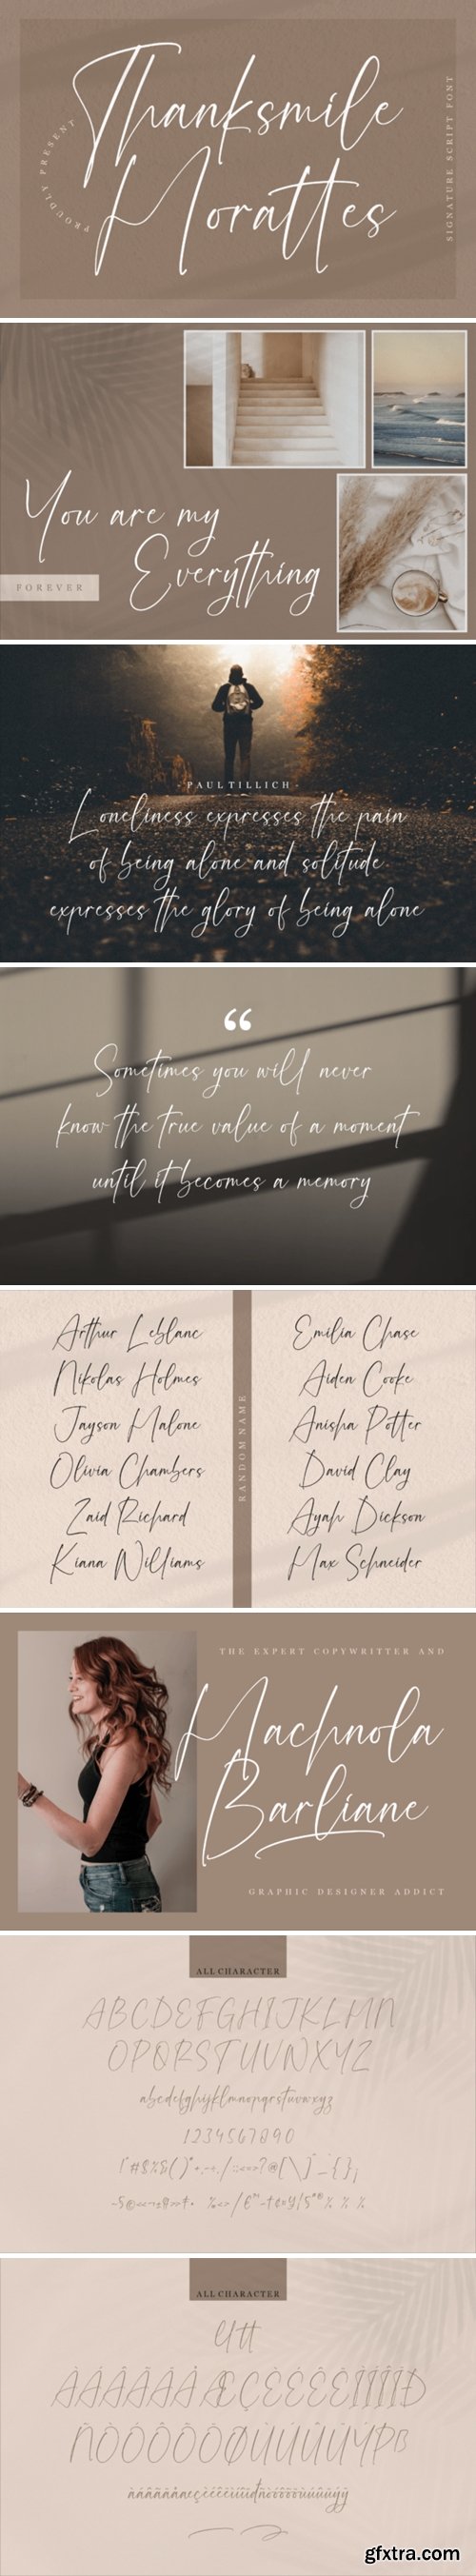 PROUDLY PRESENT
Thanksmile
Morattes
SIGNATURE SCRIPT FONT
You are my
Everything
FOREVER
- PAUL TILLICH -
Loneliness expresses the pain
of being alone and solitude
expresses the glory of being alone
“
Sometimes you will never
know the true value of a moment
until it becomes a memory
Arthur Leblanc
Nikolas Holmes
Jayson Malone
Olivia Chambers
Zaid Richard
Kiana Williams
RANDOM NAME
Emilia Chase
Aiden Cooke
Anisha Potter
David Clay
Ayah Dickson
Max Schneider
THE EXPERT COPYWRITTER AND
Machnola
Barliane
GRAPHIC DESIGNER ADDICT
ALL CHARACTER
ABCDEFGHIJKLMN
OPQRSTUVWXYZ
abcdefghijklmnopqrstuvwxyz
1234567890
ALL CHARACTER
gfxtra.com